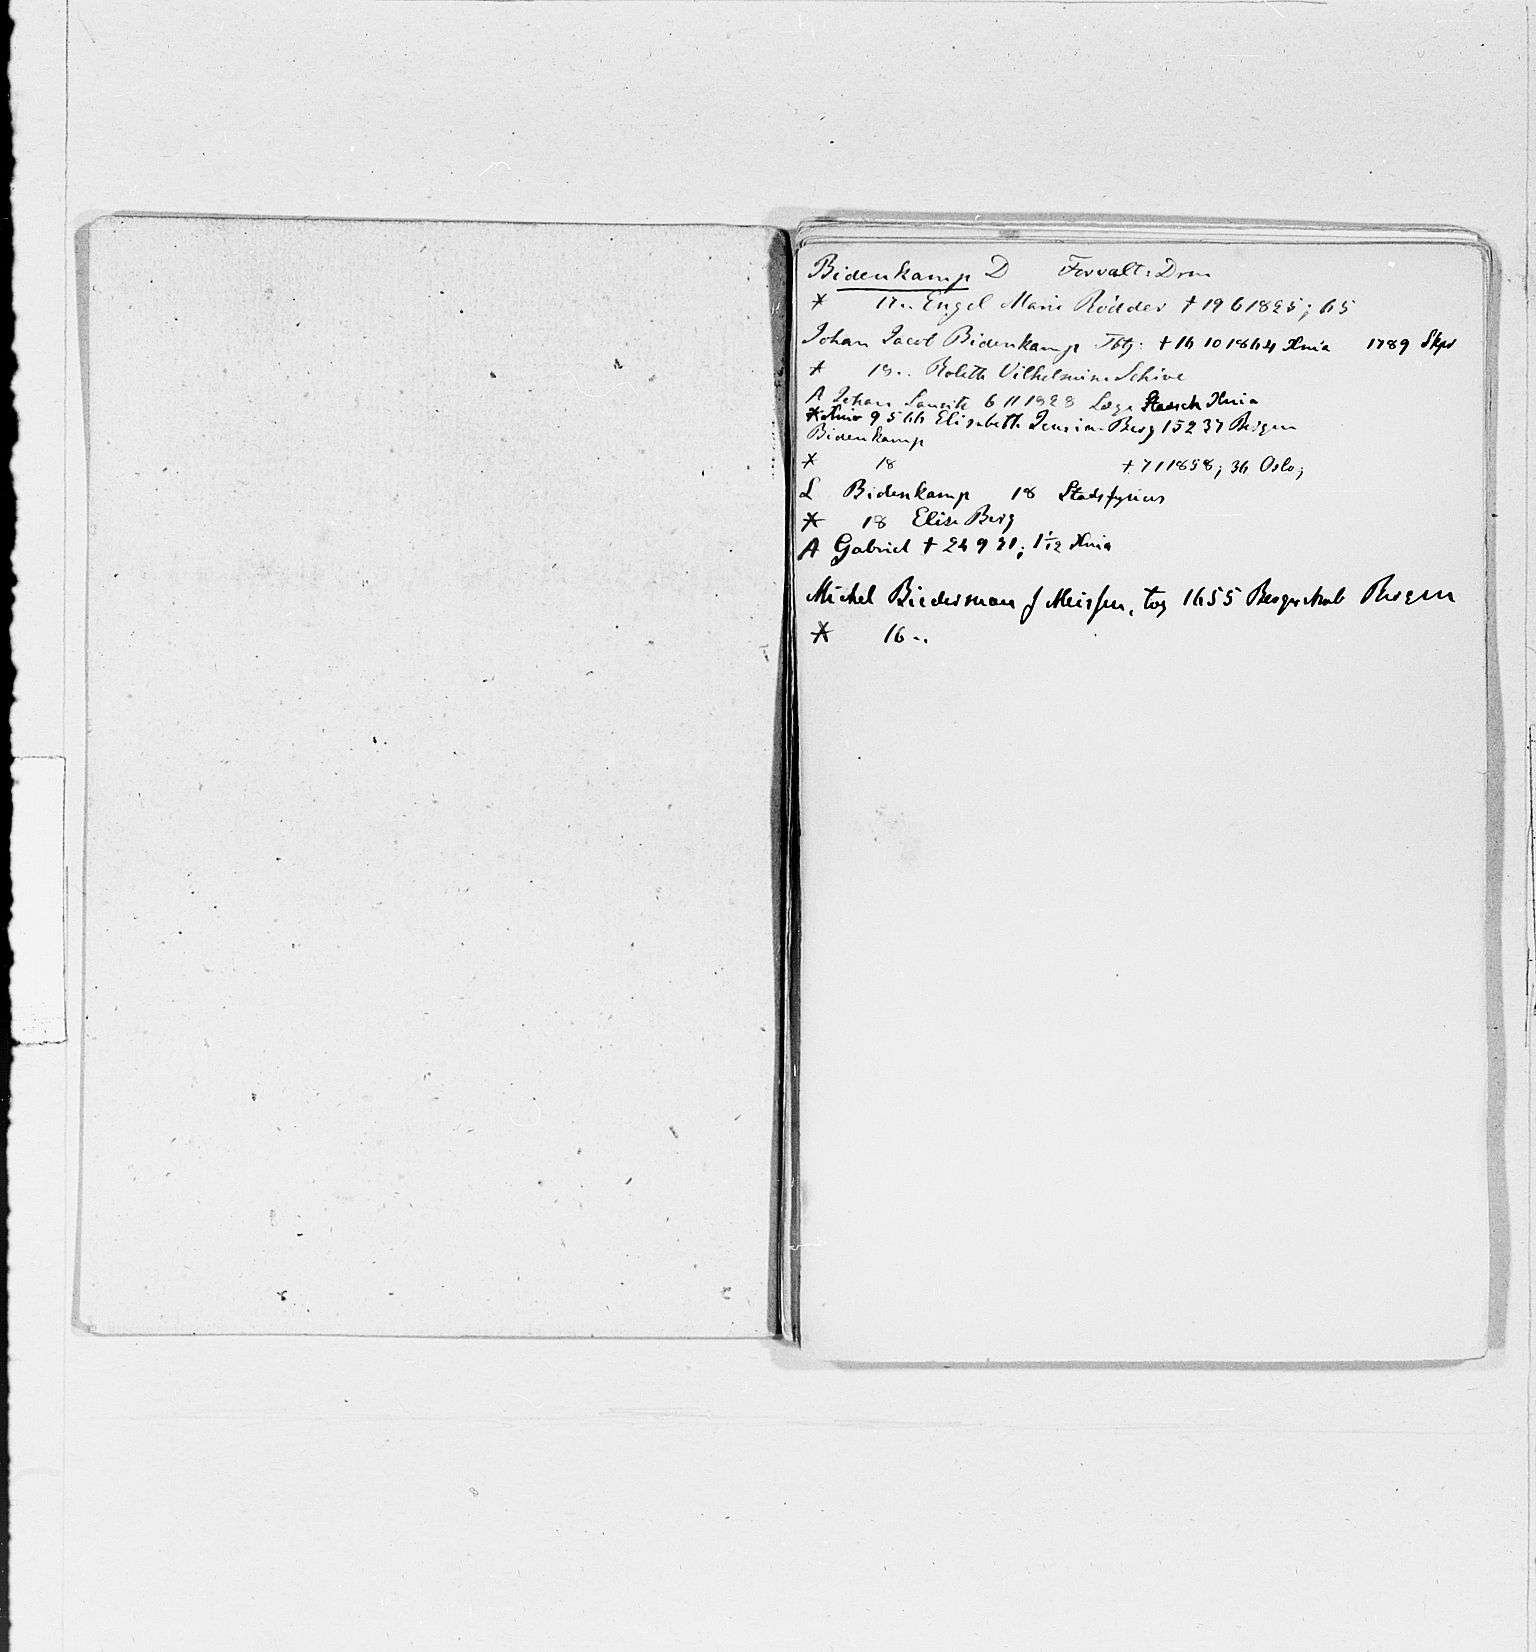 Bidenkamp D Forvalt: Drm
* 17.. Engel Marie Rödder † 19 6 1825; 65
Johan Jacob Bidenkamp † 16 10 1864 Xnia 1789 Skpr
* 18.. Boleth Vilhelmine Schive
A Johan Lauritz 6 11 1828 Læge Xnia
* Xnia 9 5 66 Elisabeth Jensine Berg 15 2 37 Bergen
Bidenkamp
* 18 † 7 1 1858; 36 Oslo;
L Bidenkamp 18 Stadsfysicus
* 18 Elise Berg
A Gabriel † 24 9 71; 1 1/12 Xnia
Michel Biederman f Meissen, tog 1655 Borgerskab Bergen
* 16..